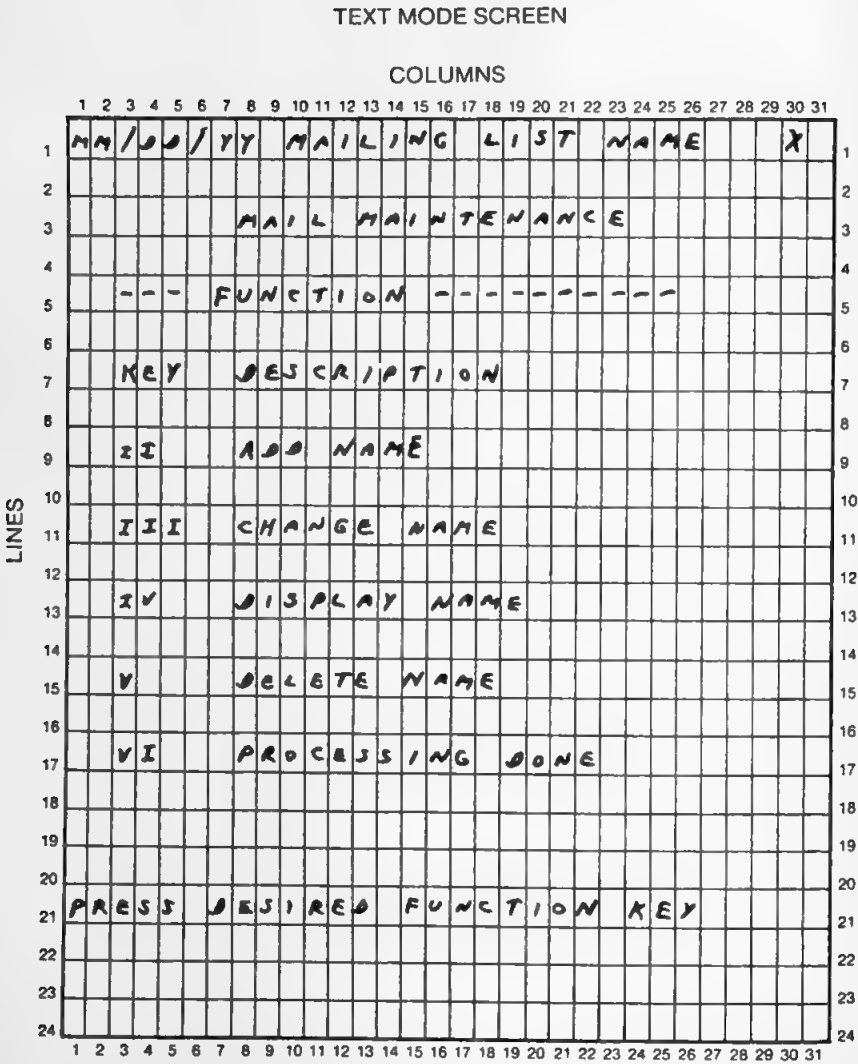 TEXT MODE SCREEN
COLUMNS
1 2 3 4 5 6 7 8 9 10 11 12 13 14 15 16 17 18 19 20 21 22 23 24 25 26 27 28 29 30 31
1 MM/DD/YY MAILING LIST NAME X 1
2 2
3 MAIL MAINTENANCE 3
4 4
5 --- FUNCTION ---------- 5
6 6
7 KEY DESCRIPTION 7
8 8
9 II ADD NAME 9
10 10
LINES
11 III CHANGE NAME 11
12 12
13 IV DISPLAY NAME 13
14 14
15 V DELETE NAME 15
16 16
17 VI PROCESSING DONE 17
18 18
19 19
20 20
21 PRESS DESIRED FUNCTION KEY 21
22 22
23 23
24 24
1 2 3 4 5 6 7 8 9 10 11 12 13 14 15 16 17 18 19 20 21 22 23 24 25 26 27 28 29 30 31